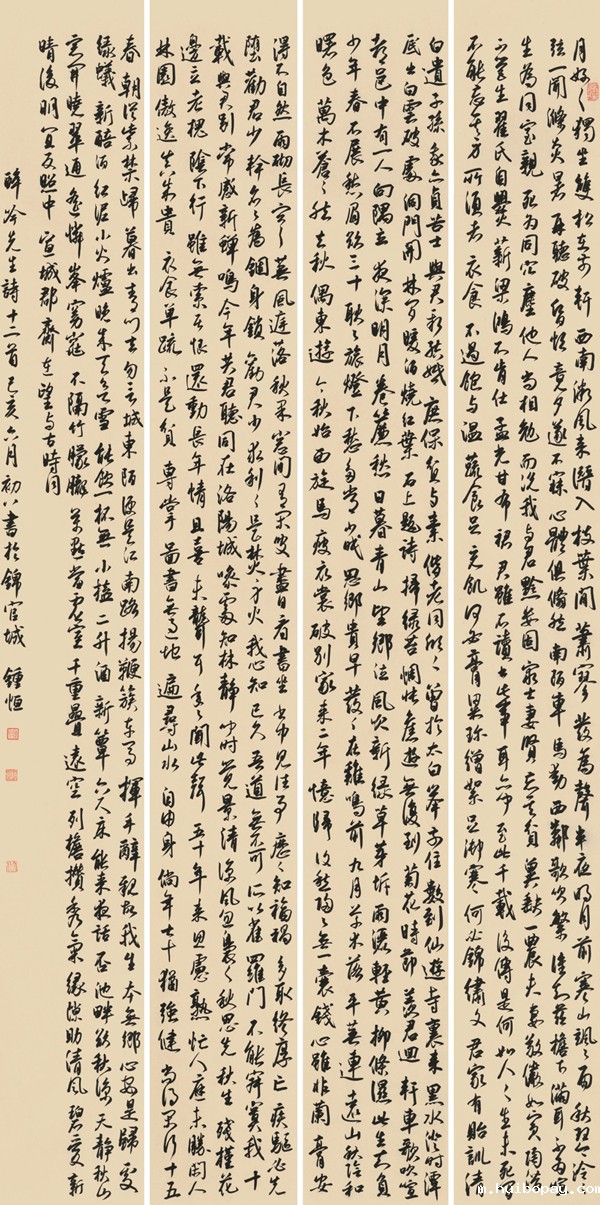 月好々獨坐雙松在前軒西南微風來潛入枝葉間蕭寥發為聲半夜明月前寒山颯々雨秋琴泠々
弦一聞滌炎暑再聽破昏煩竟夕遂不寐心體俱翛然南陌車馬動西鄰歌吹繁誰知茲檐下滿耳不為喧
生為同室親死為同穴塵他人尚相勉而況我與君黔婁固窮士妻賢忘其貧冀缺一農夫妻敬儼如賓陶潛
不營生翟氏自爨薪梁鴻不肯仕孟光甘布裙君雖不讀書此事耳亦聞至此千載後傳是何如人々生未死間
不能忘其身所須者衣食不過飽與溫蔬食足充飢何必膏粱珍繒絮足禦寒何必錦繡文君家有貽訓清
白遺子孫我亦貞苦士與君新結婚庶保貧與素偕老同欣々曾於太白峰前住數到仙遊寺裏來黑水澄時潭
底出白雲破處洞門開林間暖酒燒紅葉石上題詩掃綠苔惆悵舊遊無復到菊花時節羨君迴軒車歌吹喧
都邑中有一人向隅立夜深明月卷簾愁日暮青山望鄉泣風吹新綠草芽坼雨灑輕黃柳條濕此生知負
少年春不展愁眉欲三十耿々旅燈下愁多常少眠思鄉貴早發々在雞鳴前九月草木落平蕪連遠山秋陰和
曙色萬木蒼々然去秋偶東遊今秋始西旋馬瘦衣裳破別家來二年憶歸復愁歸々無一囊錢心雖非蘭膏安
得不自然雨砌長寒々蕪風庭落秋果窗間有閑叟盡日看書坐書中見往事歷々知福禍多取終厚亡疾驅必先
墮勸君少幹名々為錮身鎖勸君少求利々是焚身火我心知已久吾道無不可所以雀羅門不能寂寞我十
載與君別常感新蟬鳴今年共君聽同在洛陽城噪處知林靜聞時覺景清涼風忽裊々秋思先秋生殘槿花
邊立老槐陰下行雖無索居恨還動長年情且喜未聾耳年々聞此聲五十年來思慮熟忙人應未勝閑人
林園傲逸真成貴衣食單疏不是貧專掌圖書無過地遍尋山水自由身儻年七十猶強健尚得閑行十五
春朝從紫禁歸暮出青門去勿言城東陌便是江南路揚鞭簇車馬揮手辭親故我生本無鄉心安是歸處
綠蟻新醅酒紅泥小火爐晚來天欲雪能飲一杯無小榼二升酒新簟六尺床能來夜話否池畔欲秋涼天靜秋山
好窗開曉翠通遙憐峰窈窕不隔竹朦朧萬點當虛室千重疊遠空列檐攢秀氣緣隙助清風碧愛新
晴後明宜反照中宣城郡齋在望與古時同
醉吟先生詩十二首己亥六月初八書於錦官城 鍾恒
m.huibopay.com